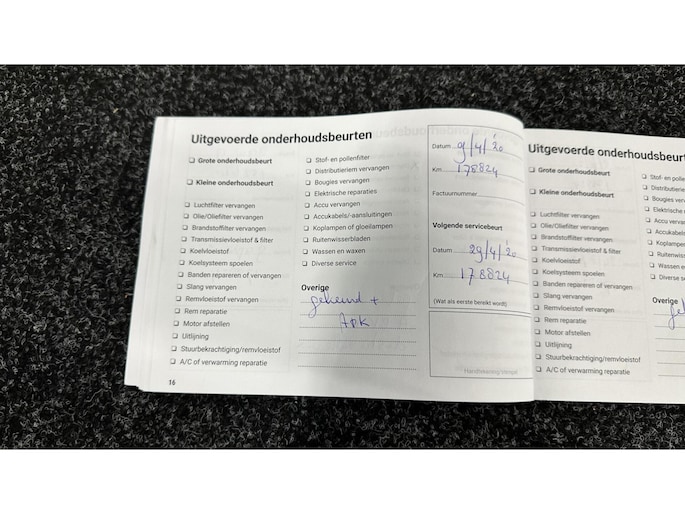 Uitgevoerde onderhoudsbeurten
Grote onderhoudsbeurt
Kleine onderhoudsbeurt
Luchtfilter vervangen
Olie/Oliefilter vervangen
Brandstoffilter vervangen
Transmissievloeistof & filter
Koelvloeistof
Koelsysteem spoelen
Banden repareren of vervangen
Slang vervangen
Remvloeistof vervangen
Rem reparatie
Motor afstellen
Uitlijning
Stuurbekrachtiging/remvloeistof
A/C of verwarming reparatie
16
Stof- en pollenfilter
Distributieriem vervangen
Bougies vervangen
Elektrische reparaties
Accu vervangen
Accukabels/-aansluitingen
Koplampen of gloeilampen
Ruitenwisserbladen
Wassen en waxen
Diverse service
Overige
gekeurd +
Apk
Datum 9/4/'20
Km 178824
Factuurnummer
Volgende servicebeurt
Datum 29/4/'20
Km 178824
(Wat als eerste bereikt wordt)
Handtekening/stempel
Uitgevoerde onderhoudsbeur
Grote onderhoudsbeurt
Kleine onderhoudsbeurt
Luchtfilter vervangen
Olie/Oliefilter vervangen
Brandstoffilter vervangen
Transmissievloeistof & filter
Koelvloeistof
Koelsysteem spoelen
Banden repareren of vervangen
Slang vervangen
Remvloeistof vervangen
Rem reparatie
Motor afstellen
Uitlijning
Stuurbekrachtiging/remvloeistof
A/C of verwarming reparatie
Stof- en polle
Distributierie
Bougies ver
Elektrische r
Accu vervan
Accukabels
Koplampen
Ruitenwiss
Wassen e
Diverse s
Overige